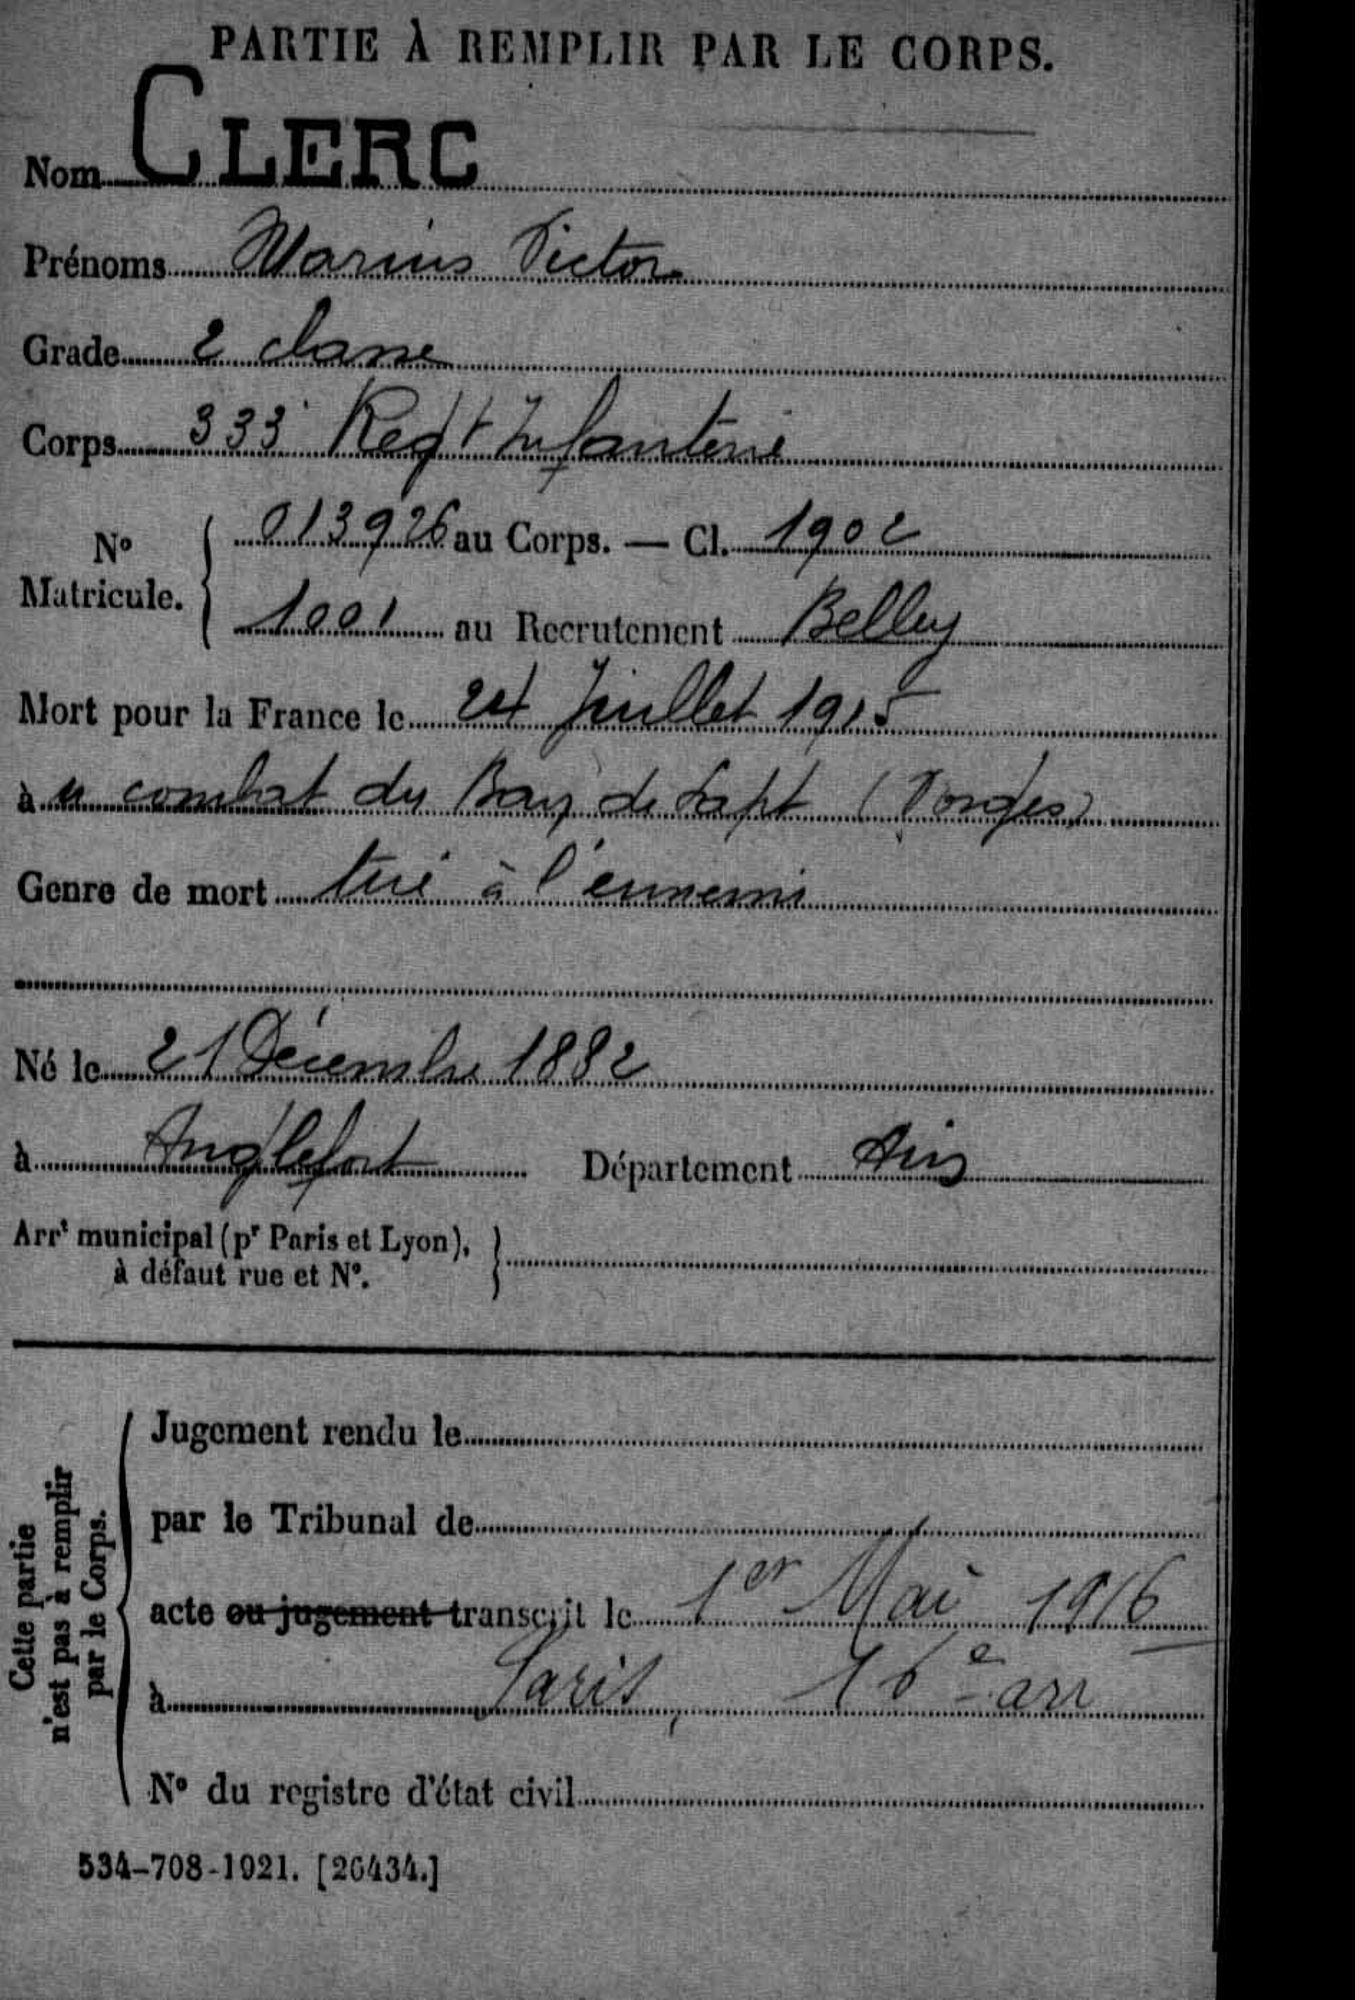 PARTIE À REMPLIR PAR LE CORPS.
Nom CLERC
Prénoms Marius Victor
Grade 2 classe
Corps 333 Regt Infanterie
No Matricule. 013926 au Corps. — Cl. 1902
1001 au Recrutement Belley
Mort pour la France le 24 Juillet 1915
à u combat du Ban de Sapt (Vosges)
Genre de mort tué à l'ennemi
Né le 21 Décembre 1882
à Anglefort Département Ain
Arrt municipal (pr Paris et Lyon),
à défaut rue et No.
Cette partie
n'est pas à remplir
par le Corps.
Jugement rendu le
par le Tribunal de
acte ou jugement transcrit le 1er Mai 1916
à Paris, 16e arr
No du registre d'état civil
534-708-1921. [26434.]